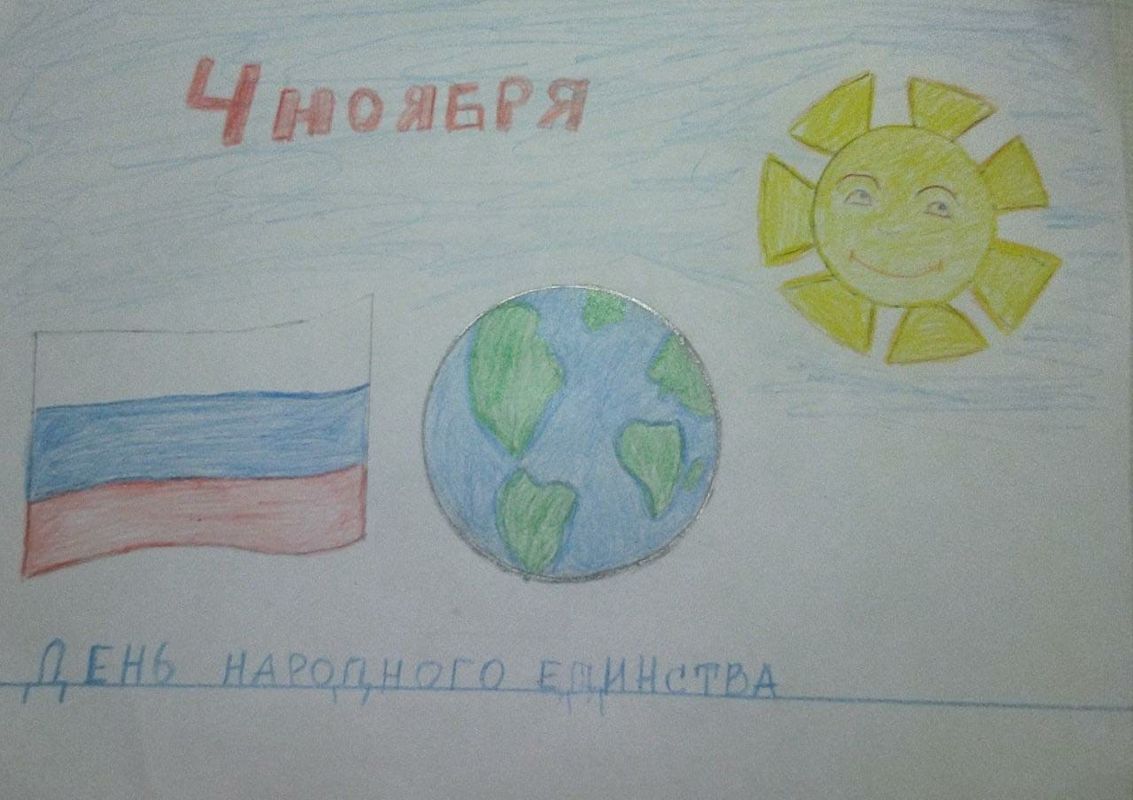 4 НОЯБРЯ
ДЕНЬ НАРОДНОГО ЕДИНСТВА